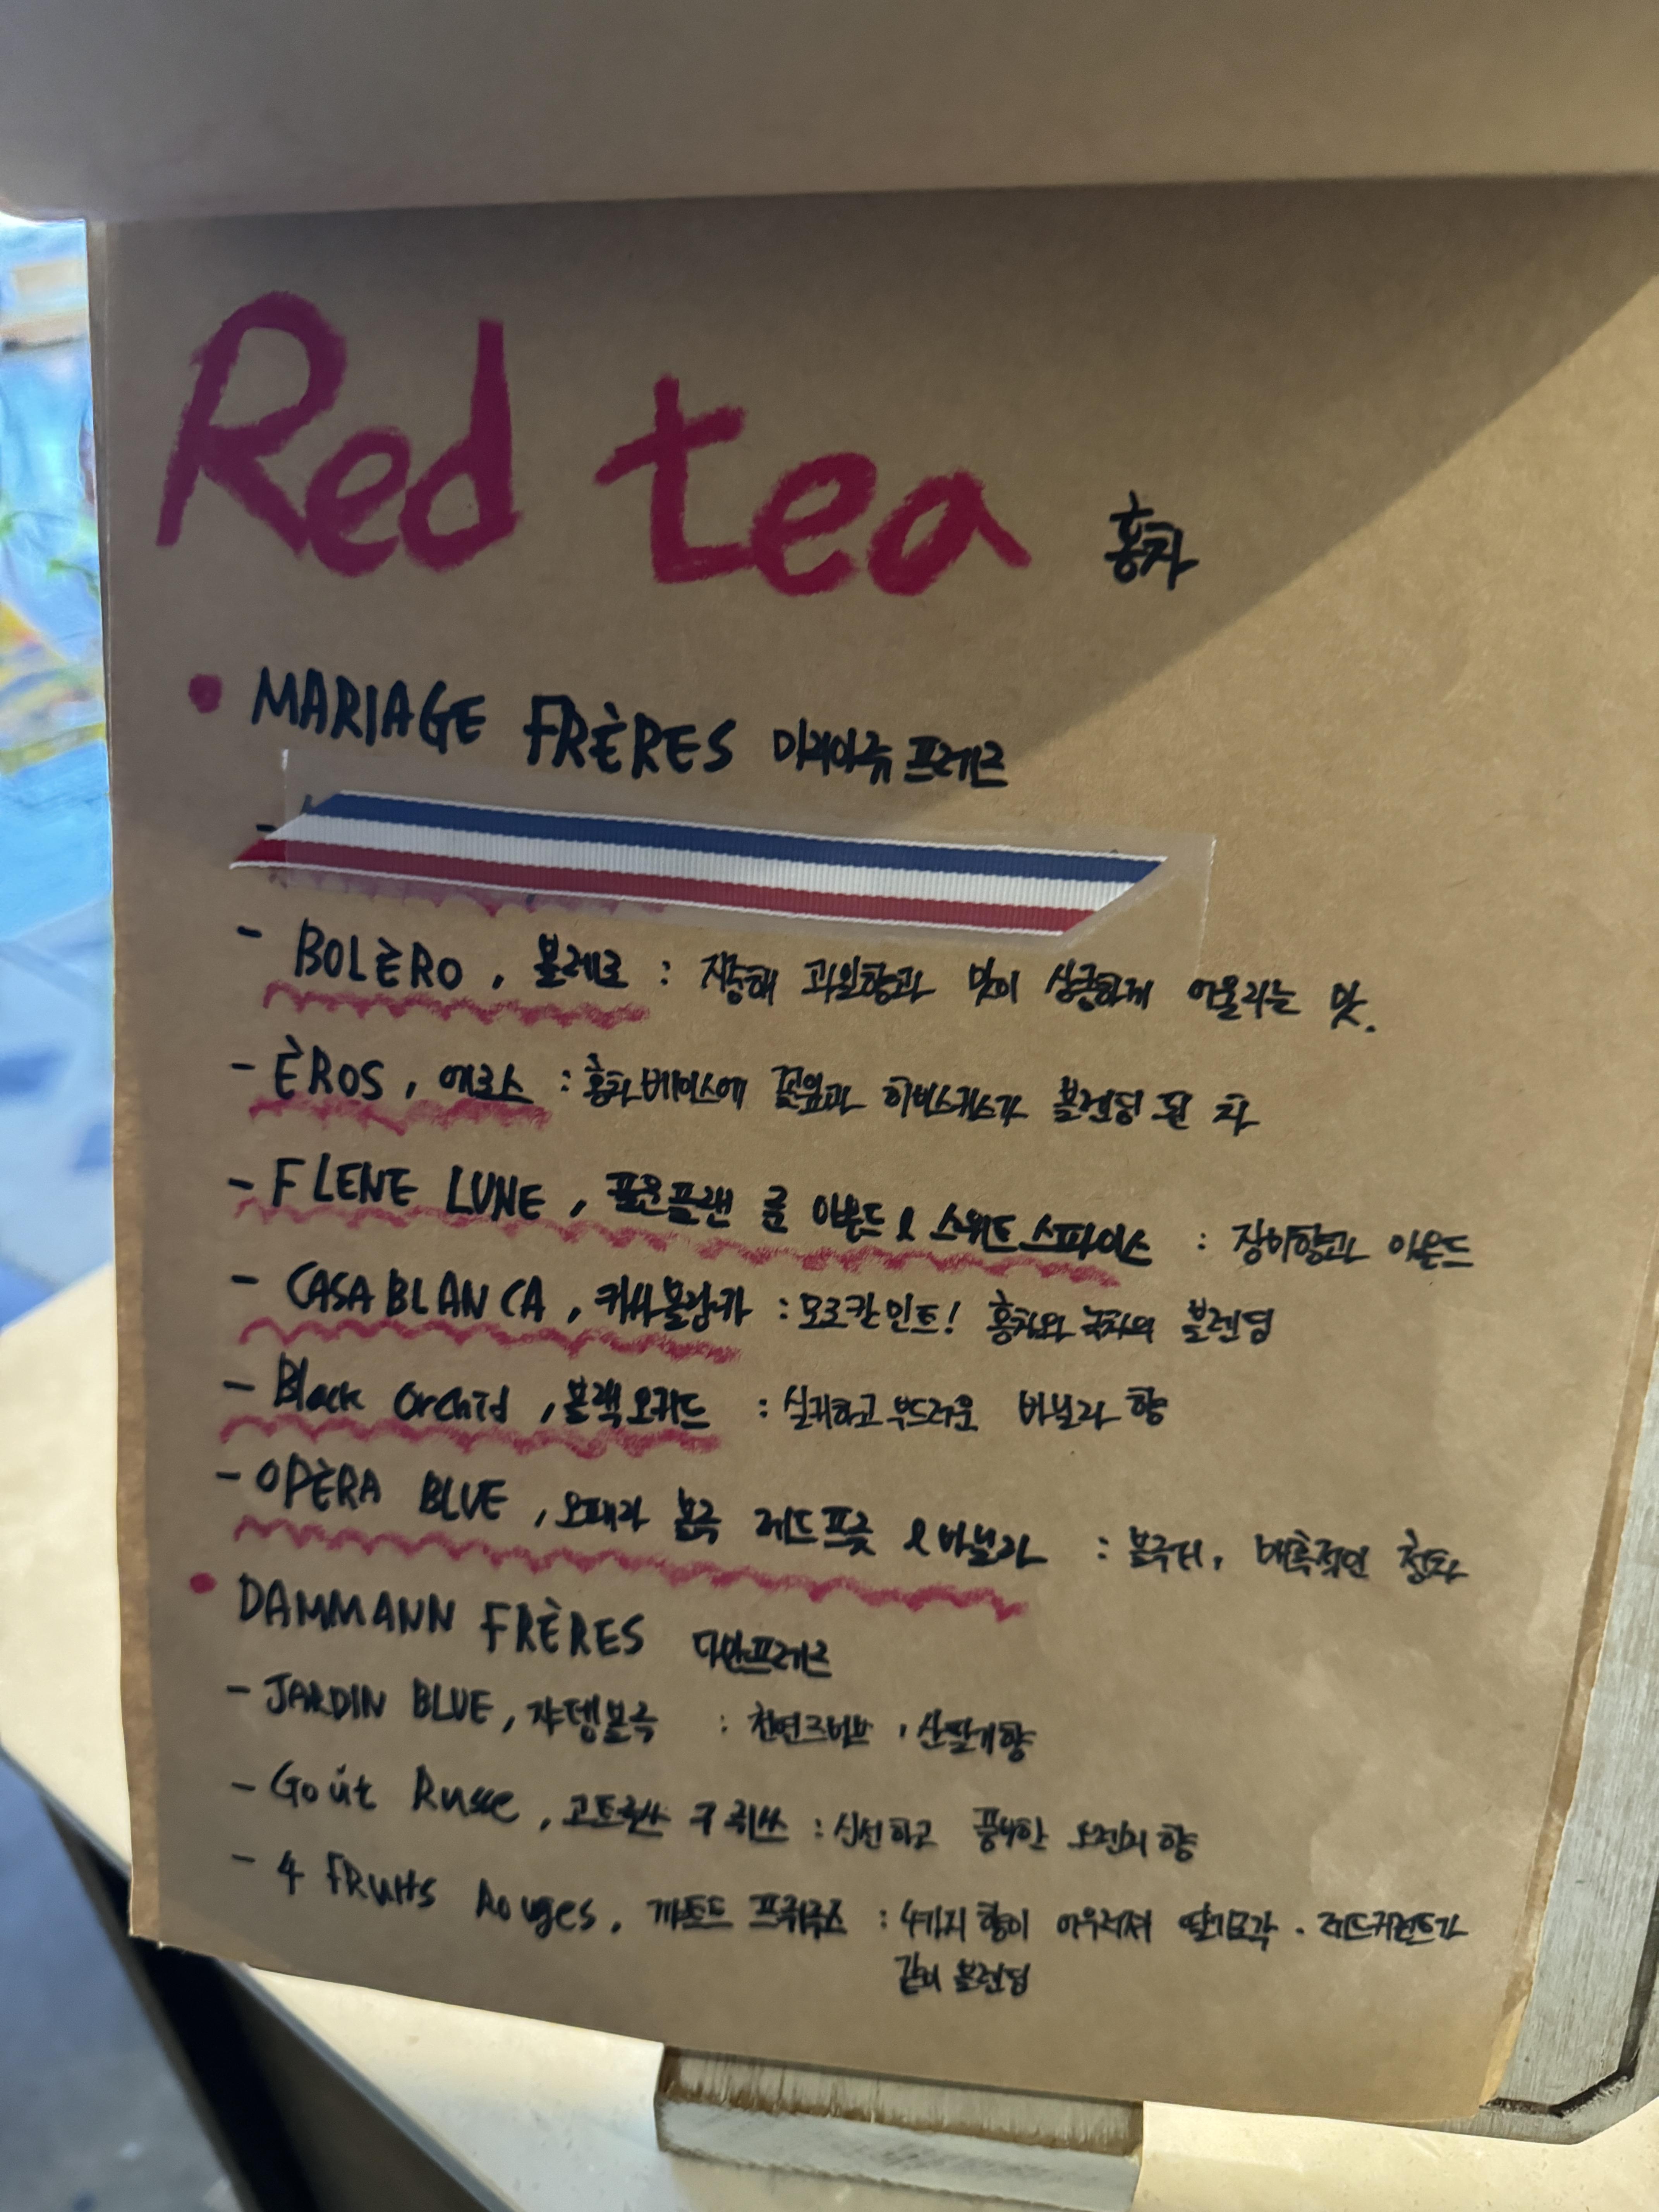 Red tea 홍차
• MARIAGE FRÈRES 마리아쥬 프레르
-
- BOLÈRO, 볼레로 : 지중해 과일향과 맛이 상큼하게 어울리는 맛.
- ÈROS, 에로스 : 홍차베이스에 꽃잎과 히비스커스가 블렌딩 된 차
- FLENE LUNE, 플랜 룬 아몬드 & 스위트 스파이스 : 장미향과 아몬드
- CASABLANCA, 카사블랑카 : 모로칸 민트! 홍차와 녹차의 블렌딩
- Black Orchid, 블랙오키드 : 실키하고 부드러운 바닐라 향
- OPÈRA BLUE, 오페라 블루 레드프룻 & 바닐라 : 블루티, 매혹적인 청차
• DAMMANN FRÈRES 다만프레르
- JARDIN BLUE, 쟈뎅블루 : 천연루바브, 산딸기향
- Goút Russe, : 신선하고 풍부한 오렌지 향
- 4 FRUits Rouges, 까트르 프뤼루즈 : 4가지 향이 어우러져 딸기조각. 레드커런트가
같이 블렌딩